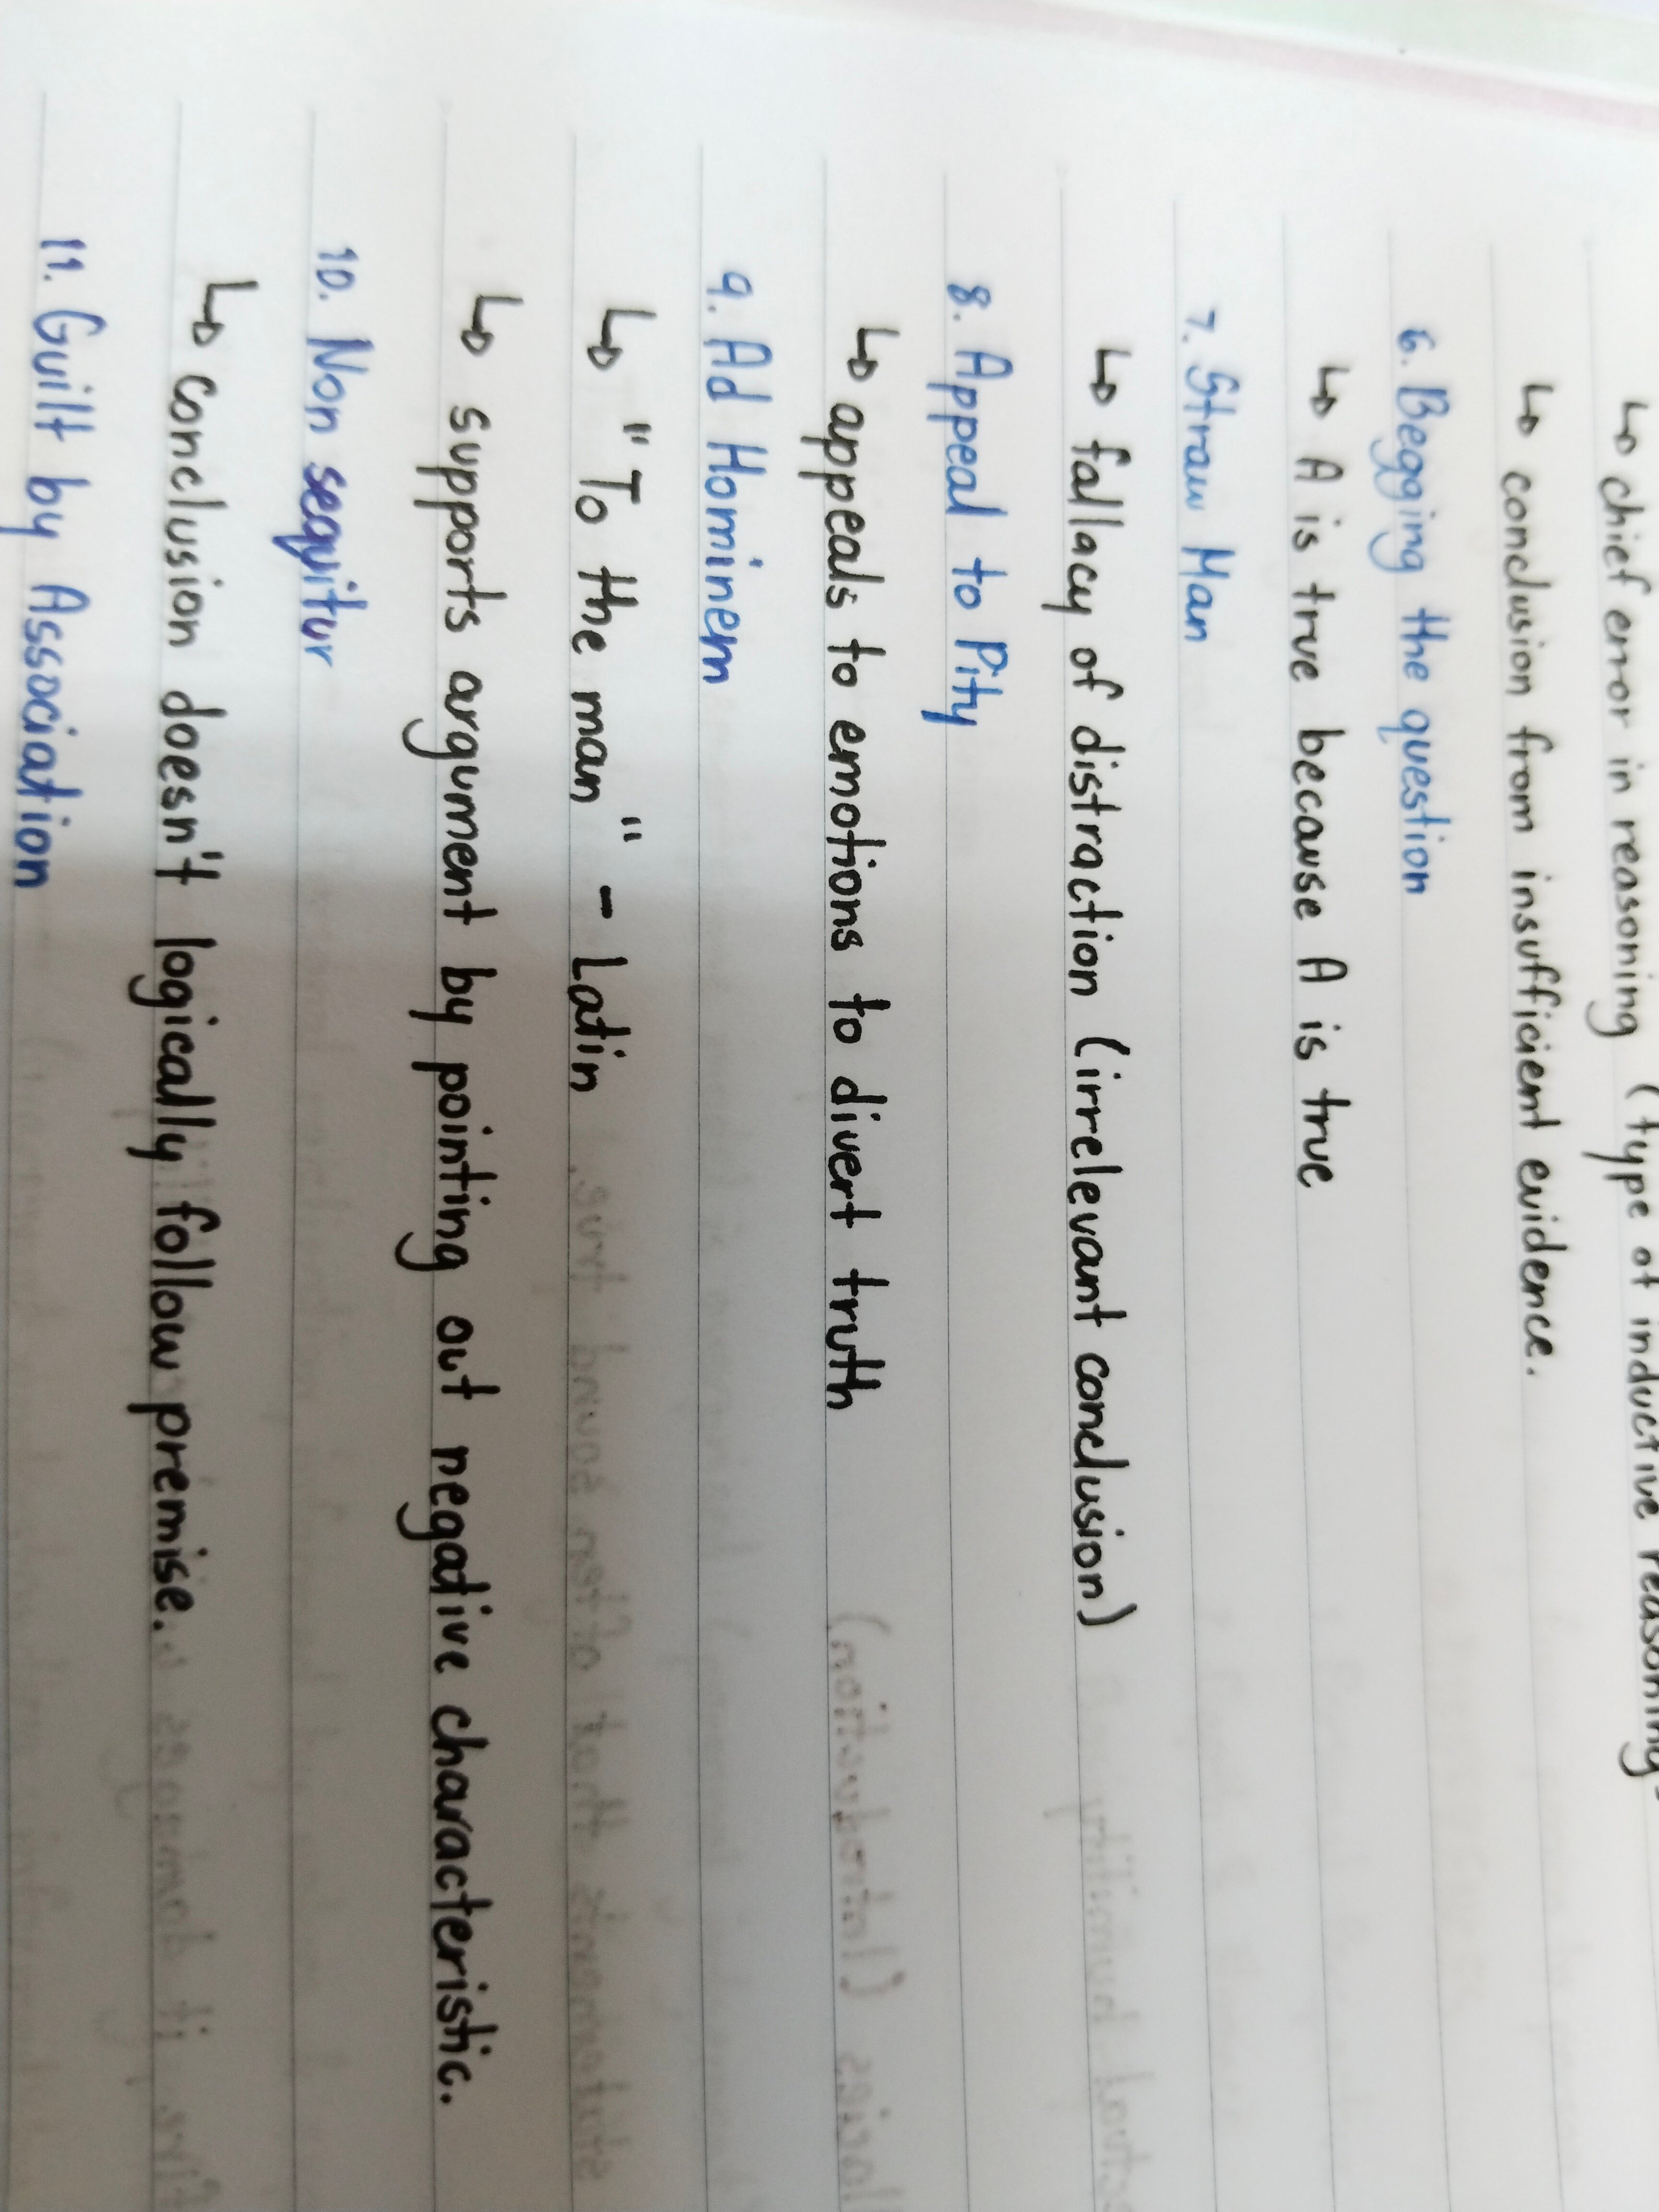 ↳ chief error in reasoning (type of inductive reasoning
↳ conclusion from insufficient evidence.
6. Begging the question
↳ A is true because A is true
7. Straw Man
↳ fallacy of distraction (irrelevant conclusion)
8. Appeal to Pity
↳ appeals to emotions to divert truth
9. Ad Hominem
↳ "To the man" - Latin
↳ supports argument by pointing out negative characteristic.
10. Non sequitur
↳ conclusion doesn't logically follow premise.
11. Guilt by Association